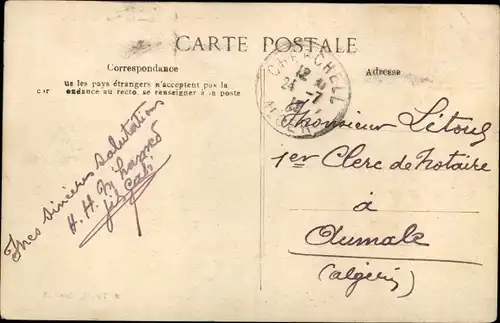 CARTE POSTALE
Correspondance
Adresse
us les pays étrangers n'acceptent pas la
cor ondance au recto. se renseigner à la poste
CHERCHELL
12
24 -7
ALGER
Mes sincères salutations
H. H. M'hamed
Monsieur Létoul
1er Clerc de Notaire
à
Aumale
(Algérie)